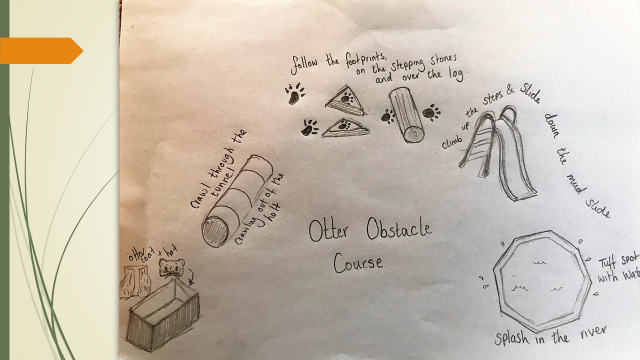 follow the footprints,
on the stepping stones
and over the log.
climb up the steps & slide down the mud slide
crawl through the
tunnel
crawling out of the
holt
Otter Obstacle
Course
otter
coat + hat
Tuff spot
with Wat
splash in the river